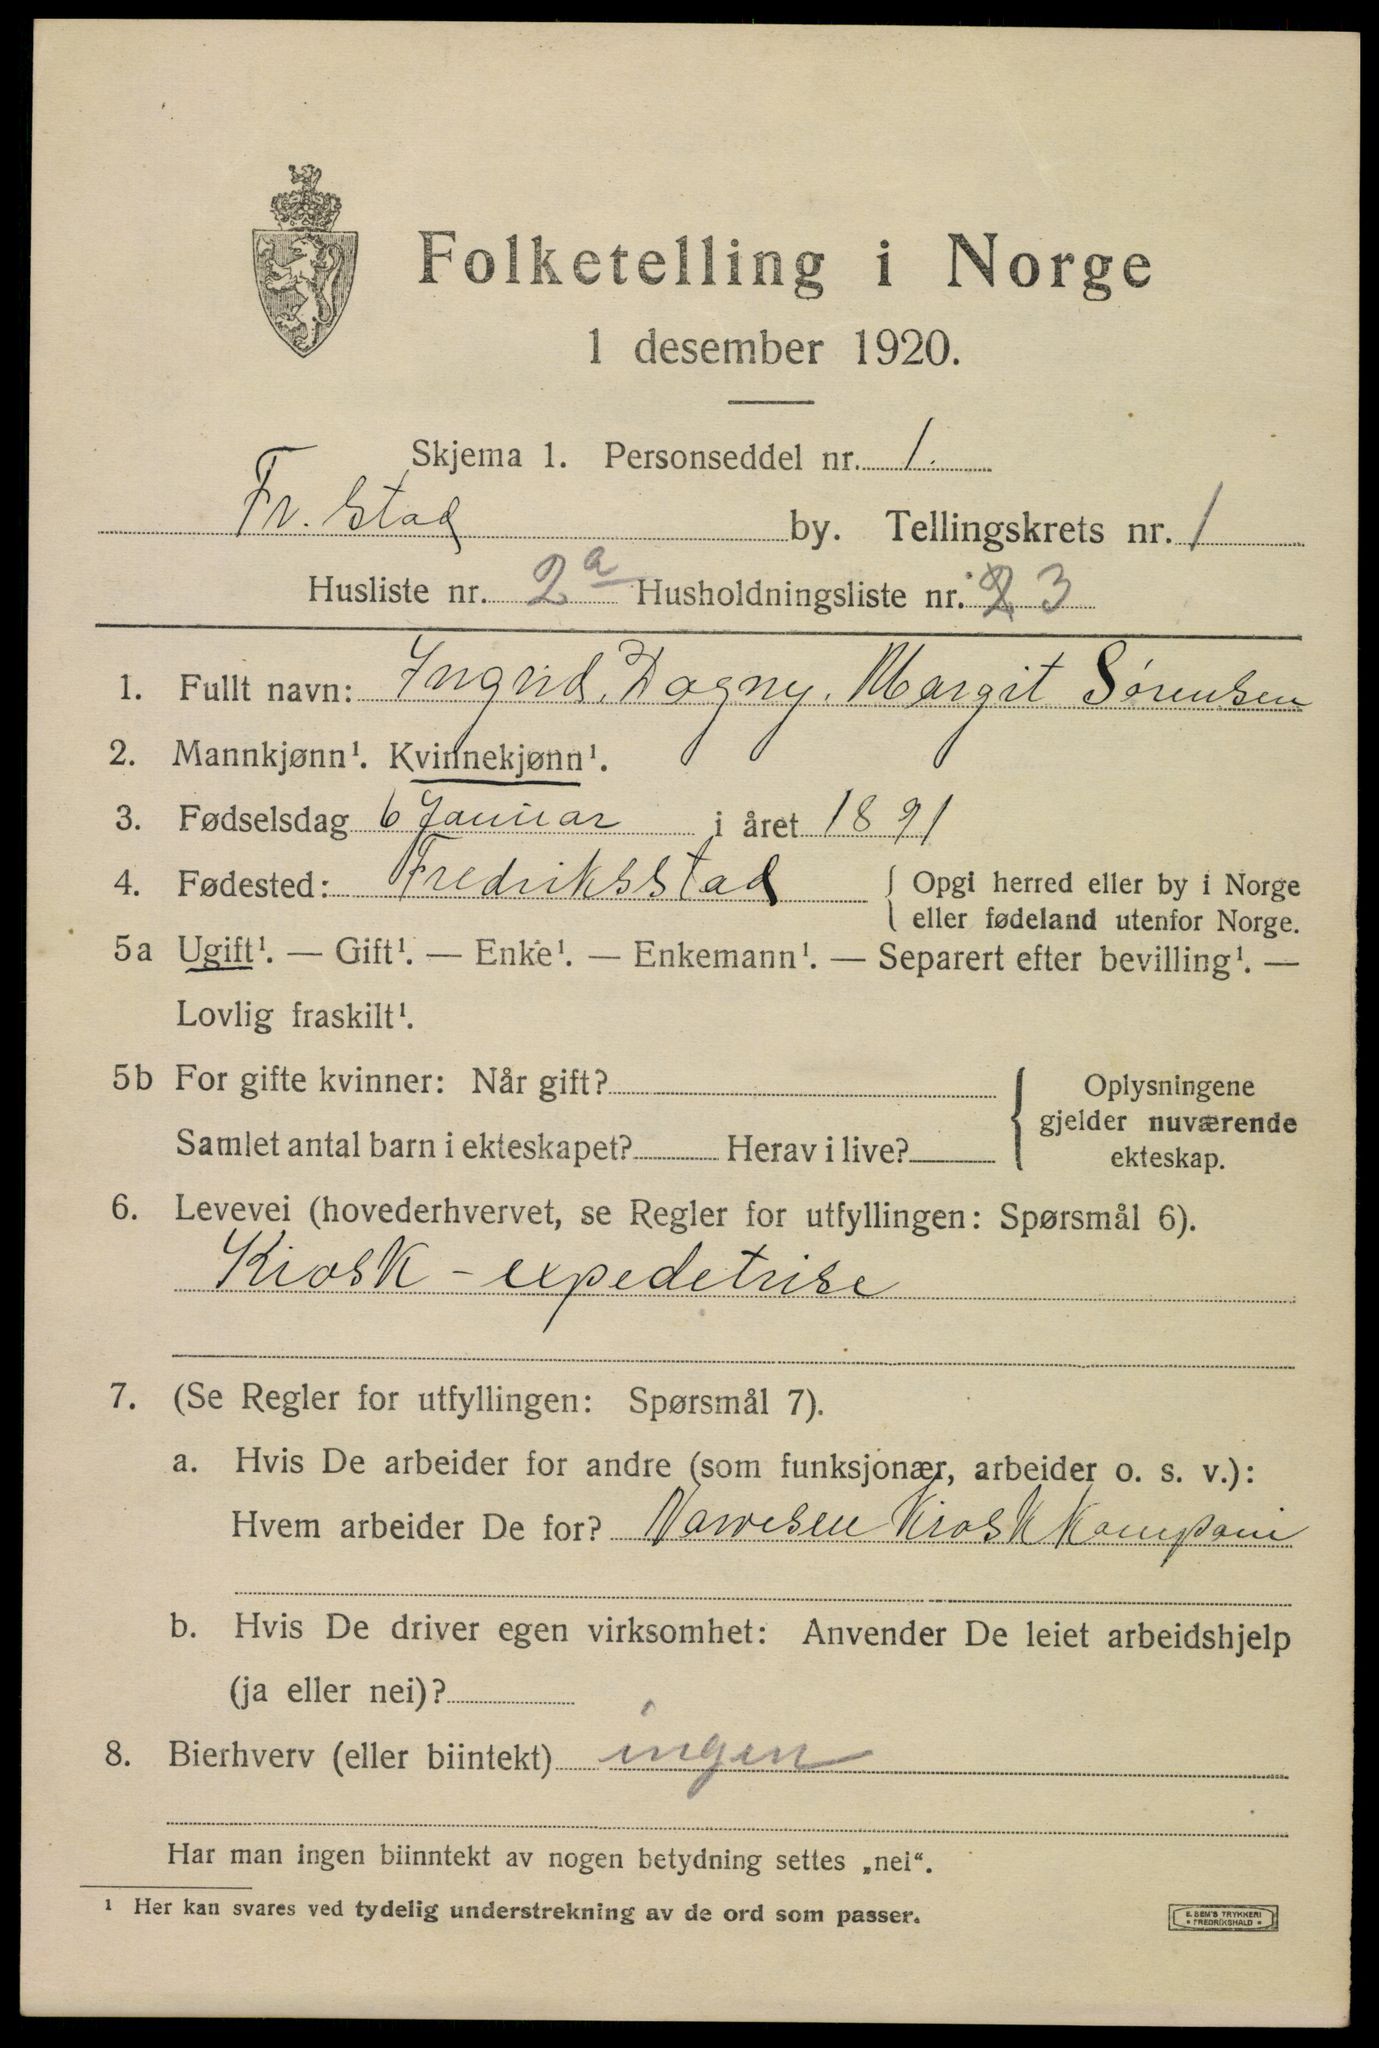 Folketelling i Norge
1 desember 1920.
Skjema 1. Personseddel nr. 1.
Fr.stad by. Tellingskrets nr. 1
Husliste nr. 2a Husholdningsliste nr. 3
1. Fullt navn: Ingrid. Dagny. Margit Sørensen
2. Mannkjønn¹. Kvinnekjønn¹.
3. Fødselsdag 6 Januar i året 1891
4. Fødested: Fredriksstad { Opgi herred eller by i Norge
eller fødeland utenfor Norge.
5a Ugift¹. — Gift¹. — Enke¹. — Enkemann¹. — Separert efter bevilling¹. —
Lovlig fraskilt¹.
5b For gifte kvinner: Når gift? Oplysningene
gjelder nuværende
Samlet antal barn i ekteskapet? Herav i live? ekteskap.
6. Levevei (hovederhvervet, se Regler for utfyllingen: Spørsmål 6).
Kiosk - expedetrise
7. (Se Regler for utfyllingen: Spørsmål 7).
a. Hvis De arbeider for andre (som funksjonær, arbeider o. s. v.):
Hvem arbeider De for? Narvesen Kiosk Kompani
b. Hvis De driver egen virksomhet: Anvender De leiet arbeidshjelp
(ja eller nei)?
8. Bierhverv (eller biintekt) ingen
Har man ingen biinntekt av nogen betydning settes „nei“.
¹ Her kan svares ved tydelig understrekning av de ord som passer.
E. SEM'S TRYKKERI
* FREDRIKSHALD *